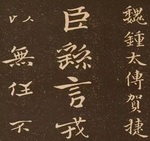 魏鍾太傅賀捷
臣繇言戎
以無任不